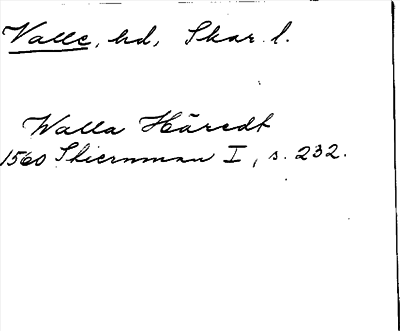 Valle, hd, Skar. l.
Walla Häredt
1560 Stiernman I, s. 232.